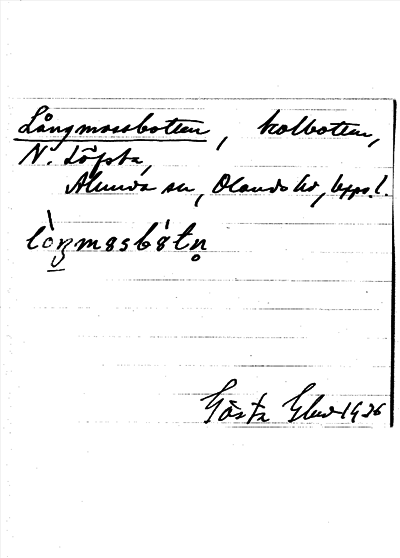 Långmossbotten, kolbotten,
N. Löfsta,
Alunda sn, Olands hd, Uppl.
lòŋmɵsbɵ́tn̥
Gösta 1926